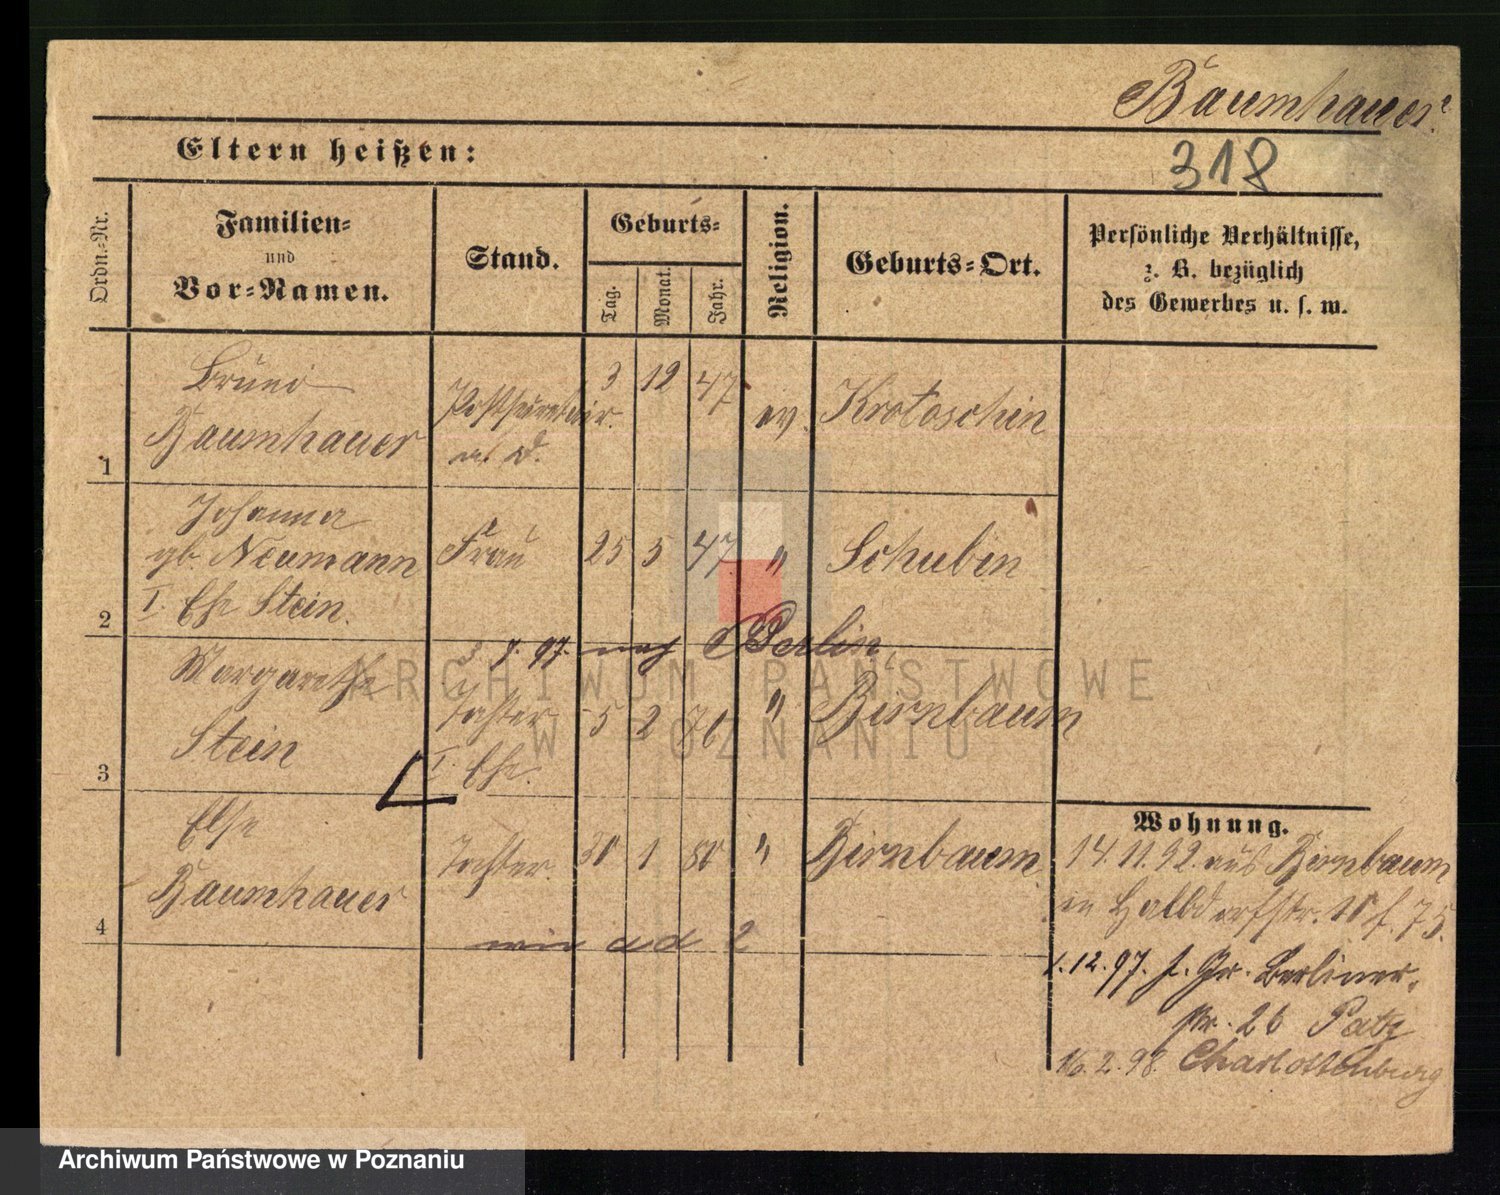 Baumhauer
318
Eltern heißen:
Ordn.-Nr.
Familien-
und
Vor-Namen.
Stand.
Geburts-
Tag.
Monat.
Jahr.
Religion.
Geburts-Ort.
Persönliche Verhältnisse,
z. B. bezüglich
des Gewerbes u. s. w.
Bruno
Baumhauer
1
Postsecretair
a. D.
3 12 47
ev.
Krotoschin
Johanna
gb. Neumann
I. Ehe Stein.
2
Frau
25 5 47
"
Schubin
97. nach Berlin
Margarethe
Stein
3
Tochter
I. Ehe.
5 2 71
"
Birnbaum
Else
Baumhauer
4
Tochter.
30 1 80
"
Birnbaum
wie ad 2
Wohnung.
14.11.92. aus Birnbaum
in Halbdorfstr. 10 f. 75.
1.12.97. f. Gr. Berliner-
str. 26
16.2.98. Charlottenburg
ARCHIWUM PAŃSTWOWE
W POZNANIU
Archiwum Państwowe w Poznaniu